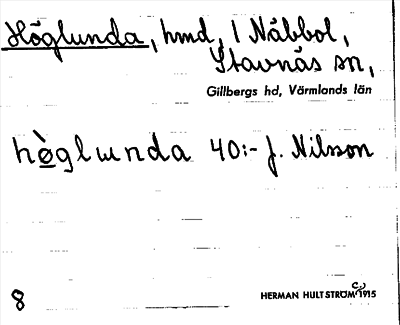 Höglunda, hmd, 1 Nåbbol,
Stavnäs sn,
Gillbergs hd, Värmlands län
hò̲glɯnda 40:- J. Nilsson
8
HERMAN HULTSTRÖM 1915